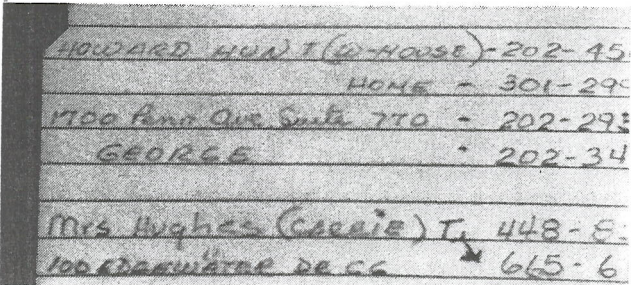 HOWARD HUNT (W-HOUSE) - 202-45
HOME - 301-299
1700 Penn Ave Suite 770 - 202-293
GEORGE - 202-34
Mrs Hughes (CARRIE) T, 448-8
100 EDGEWATER DR CG 665-6